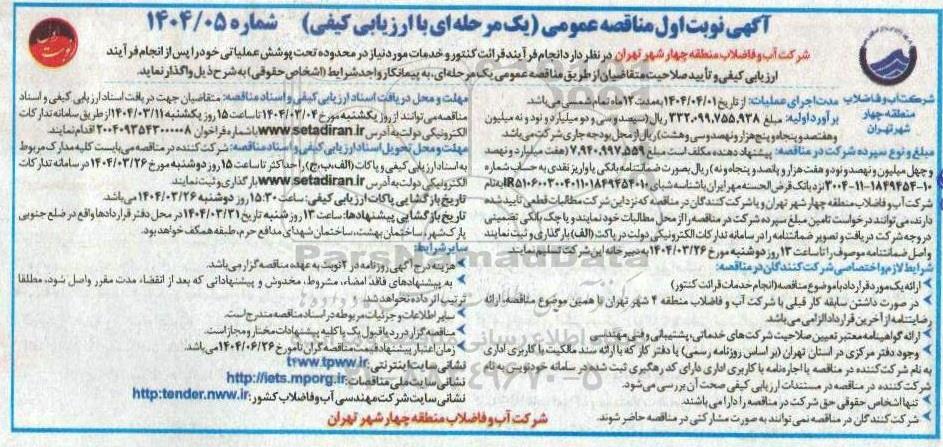 آگهی نوبت اول مناقصه عمومی (یک مرحله‌ای با ارزیابی کیفی) شماره ۱۴۰۴/۰۵
نوبت اول
شرکت آب و فاضلاب منطقه چهار شهر تهران در نظر دارد انجام فرآیند قرائت کنتور و خدمات مورد نیاز در محدوده تحت پوشش عملیاتی خود را پس از انجام فرآیند
ارزیابی کیفی و تأیید صلاحیت متقاضیان از طریق مناقصه عمومی یک مرحله‌ای، به پیمانکار واجد شرایط (اشخاص حقوقی) به شرح ذیل واگذار نماید.
شرکت آب و فاضلاب
منطقه چهار
شهر تهران
مدت اجرای عملیات: از تاریخ ۱۴۰۴/۰۴/۰۱ به مدت ۱۲ ماه تمام شمسی می‌باشد.
برآورد اولیه: مبلغ ۳۳۲،۰۹۹،۷۵۵،۹۳۸ ریال (سیصد و سی و دو میلیارد و نود و نه میلیون
و هفتصد و پنجاه و پنج هزار و نهصد و سی و هشت) ریال از محل بودجه جاری شرکت می‌باشد.
مبلغ و نوع سپرده شرکت در مناقصه: پیشنهاد دهنده مکلف است مبلغ ۷،۹۴۰،۹۹۷،۵۵۹ (هفت میلیارد و نهصد
و چهل میلیون و نهصد و نود و هفت هزار و پانصد و پنجاه و نه) ریال بصورت ضمانتنامه بانکی یا واریز نقدی به حساب شماره
نزد بانک قرض الحسنه مهر ایران با شناسه شبای به نام
شرکت آب و فاضلاب منطقه چهار شهر تهران و یا شرکت کنندگان در مناقصه که نزد این شرکت مطالبات قطعی تأیید شده
دارند، می‌توانند درخواست تامین مبلغ سپرده شرکت در مناقصه را از محل مطالبات خود نمایند و یا چک بانکی تضمینی
در وجه شرکت دریافت و تصویر ضمانتنامه را در سامانه تدارکات الکترونیکی دولت در پاکت (الف) بارگذاری و ثبت نمایند
و اصل ضمانتنامه موصوف را تا ساعت ۱۳ روز دوشنبه مورخ ۱۴۰۴/۰۳/۲۶ به دبیرخانه این شرکت تسلیم نمایند.
شرایط لازم و اختصاصی شرکت کنندگان در مناقصه:
ارائه یک مورد قرارداد با موضوع مناقصه (انجام خدمات قرائت کنتور)
در صورت داشتن سابقه کار قبلی با شرکت آب و فاضلاب منطقه ۴ شهر تهران با همین موضوع مناقصه، ارائه
رضایتنامه از آخرین قرارداد الزامی می‌باشد.
ارائه گواهینامه معتبر تعیین صلاحیت شرکت‌های خدماتی، پشتیبانی و فنی مهندسی
وجود دفتر مرکزی در استان تهران (بر اساس روزنامه رسمی) یا دفتر کار که با ارائه سند مالکیت با کاربری اداری
به نام شرکت کننده در مناقصه یا اجاره‌نامه با کاربری اداری دارای کد رهگیری ثبت شده در سامانه خودنویس به نام
شرکت کننده در مناقصه در مستندات ارزیابی کیفی صحت آن بررسی می‌شود.
تنها اشخاص حقوقی حق شرکت در مناقصه را دارا می‌باشند.
شرکت کنندگان در مناقصه نمی‌توانند به صورت مشارکتی در مناقصه حاضر شوند.
مهلت و محل دریافت اسناد ارزیابی کیفی و اسناد مناقصه: متقاضیان جهت دریافت اسناد ارزیابی کیفی و اسناد
مناقصه می‌توانند از روز یکشنبه مورخ ۱۴۰۴/۰۳/۰۴ تا ساعت ۱۵ روز یکشنبه ۱۴۰۴/۰۳/۱۱ از طریق سامانه تدارکات
الکترونیکی دولت به آدرس www.setadiran.ir با شماره فراخوان ۲۰۰۴۰۹۳۵۴۳۰۰۰۰۰۸ اقدام نمایند.
مهلت و محل تحویل اسناد ارزیابی کیفی و اسناد مناقصه: شرکت کننده در مناقصه می‌بایست کلیه مدارک مربوط
به اسناد ارزیابی کیفی و پاکات (الف، ب، ج) را حداکثر تا ساعت ۱۵ روز دوشنبه مورخ ۱۴۰۴/۰۳/۲۶ در سامانه تدارکات
الکترونیکی دولت به آدرس www.setadiran.ir بارگذاری و ثبت نمایند.
تاریخ بازگشایی پاکات ارزیابی کیفی: ساعت ۱۵:۳۰ روز دوشنبه ۱۴۰۴/۰۳/۲۶ می‌باشد.
تاریخ بازگشایی پیشنهادها: ساعت ۱۳ روز شنبه تاریخ ۱۴۰۴/۰۳/۳۱ در محل دفتر قراردادها واقع در ضلع جنوبی
پارک شهر، ساختمان بهشت، ساختمان شهدای مدافع حرم، طبقه همکف خواهد بود.
سایر شرایط:
هزینه درج آگهی روزنامه در ۲ نوبت به عهده مناقصه گزار می‌باشد.
به پیشنهادهای فاقد امضاء، مشروط، مخدوش و پیشنهاداتی که بعد از انقضاء مدت مقرر واصل شود، مطلقا
ترتیب اثر داده نخواهد شد.
سایر اطلاعات و جزئیات مربوطه در اسناد مناقصه مندرج است.
مناقصه گزار در رد یا قبول یک یا کلیه پیشنهادات مختار و مجاز است.
زمان اعتبار پیشنهاد قیمت مناقصه گران تا مورخ ۱۴۰۴/۰۶/۲۶ می‌باشد.
نشانی سایت اینترنتی: t4ww.tpww.ir
نشانی سایت ملی مناقصات: http://iets.mporg.ir
نشانی سایت شرکت مهندسی آب و فاضلاب کشور: http:tender.nww.ir
شرکت آب و فاضلاب منطقه چهار شهر تهران
ParsNamadData